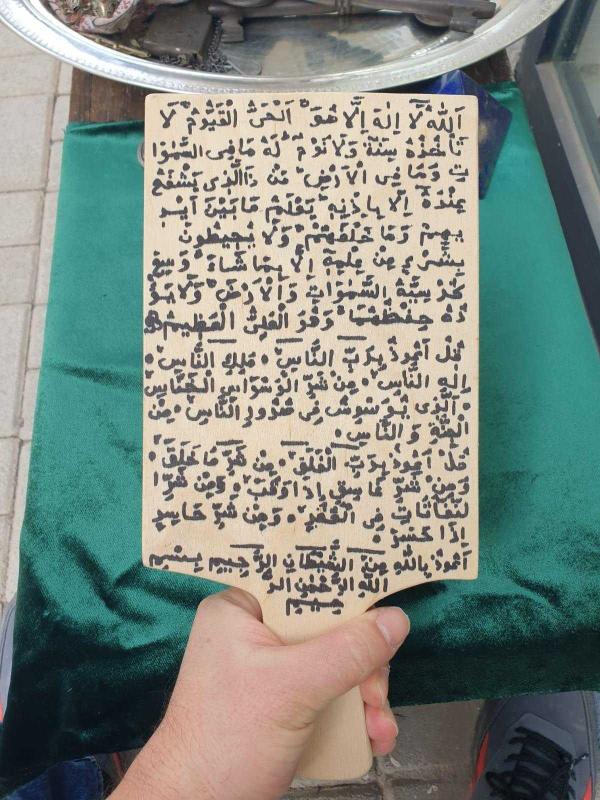 اَللّٰهُ لَا إِلٰهَ إِلَّا هُوَ اَلْحَىُّ الْقَيُّومُ لَا
تَأْخُذُهُ سِنَةٌ وَلَا نَوْمٌ لَهُ مَا فِى السَّمٰوَا
تِ وَمَا فِى الْاَرْضِ مَنْ ذَاالَّذِى يَشْفَعُ
عِنْدَهُ اِلَّا بِاِذْنِهِ يَعْلَمُ مَا بَيْنَ اَيْدِ
يهِمْ وَمَا خَلْفَهُمْ وَلَا يُحِيطُونَ
بِشَىْءٍ مِنْ عِلْمِهِ اِلَّا بِمَا شَاءَ وَسِعَ
كُرْسِيُّهُ السَّمٰوَاتِ وَالْاَرْضَ وَلَا يَؤُ
دُهُ حِفْظُهُمَا وَهُوَ الْعَلِىُّ الْعَظِيمُ
قُلْ اَعُوذُ بِرَبِّ النَّاسِ مَلِكِ النَّاسِ
اِلٰهِ النَّاسِ مِنْ شَرِّ الْوَسْوَاسِ الْخَنَّاسِ
اَلَّذِى يُوَسْوِسُ فِى صُدُورِ النَّاسِ مِنَ
الْجِنَّةِ وَ النَّاسِ
قُلْ اَعُوذُ بِرَبِّ الْفَلَقِ مِنْ شَرِّ مَا خَلَقَ
وَمِنْ شَرِّ غَاسِقٍ اِذَا وَقَبَ وَمِنْ شَرِّ ا
لنَّفَّاثَاتِ فِى الْعُقَدِ وَمِنْ شَرِّ حَاسِدٍ
اِذَا حَسَدَ
اَعُوذُ بِاللّٰهِ مِنَ الشَّيْطَانِ الرَّجِيمِ بِسْمِ
اللّٰهِ الرَّحْمٰنِ الرَّ
حِيمِ